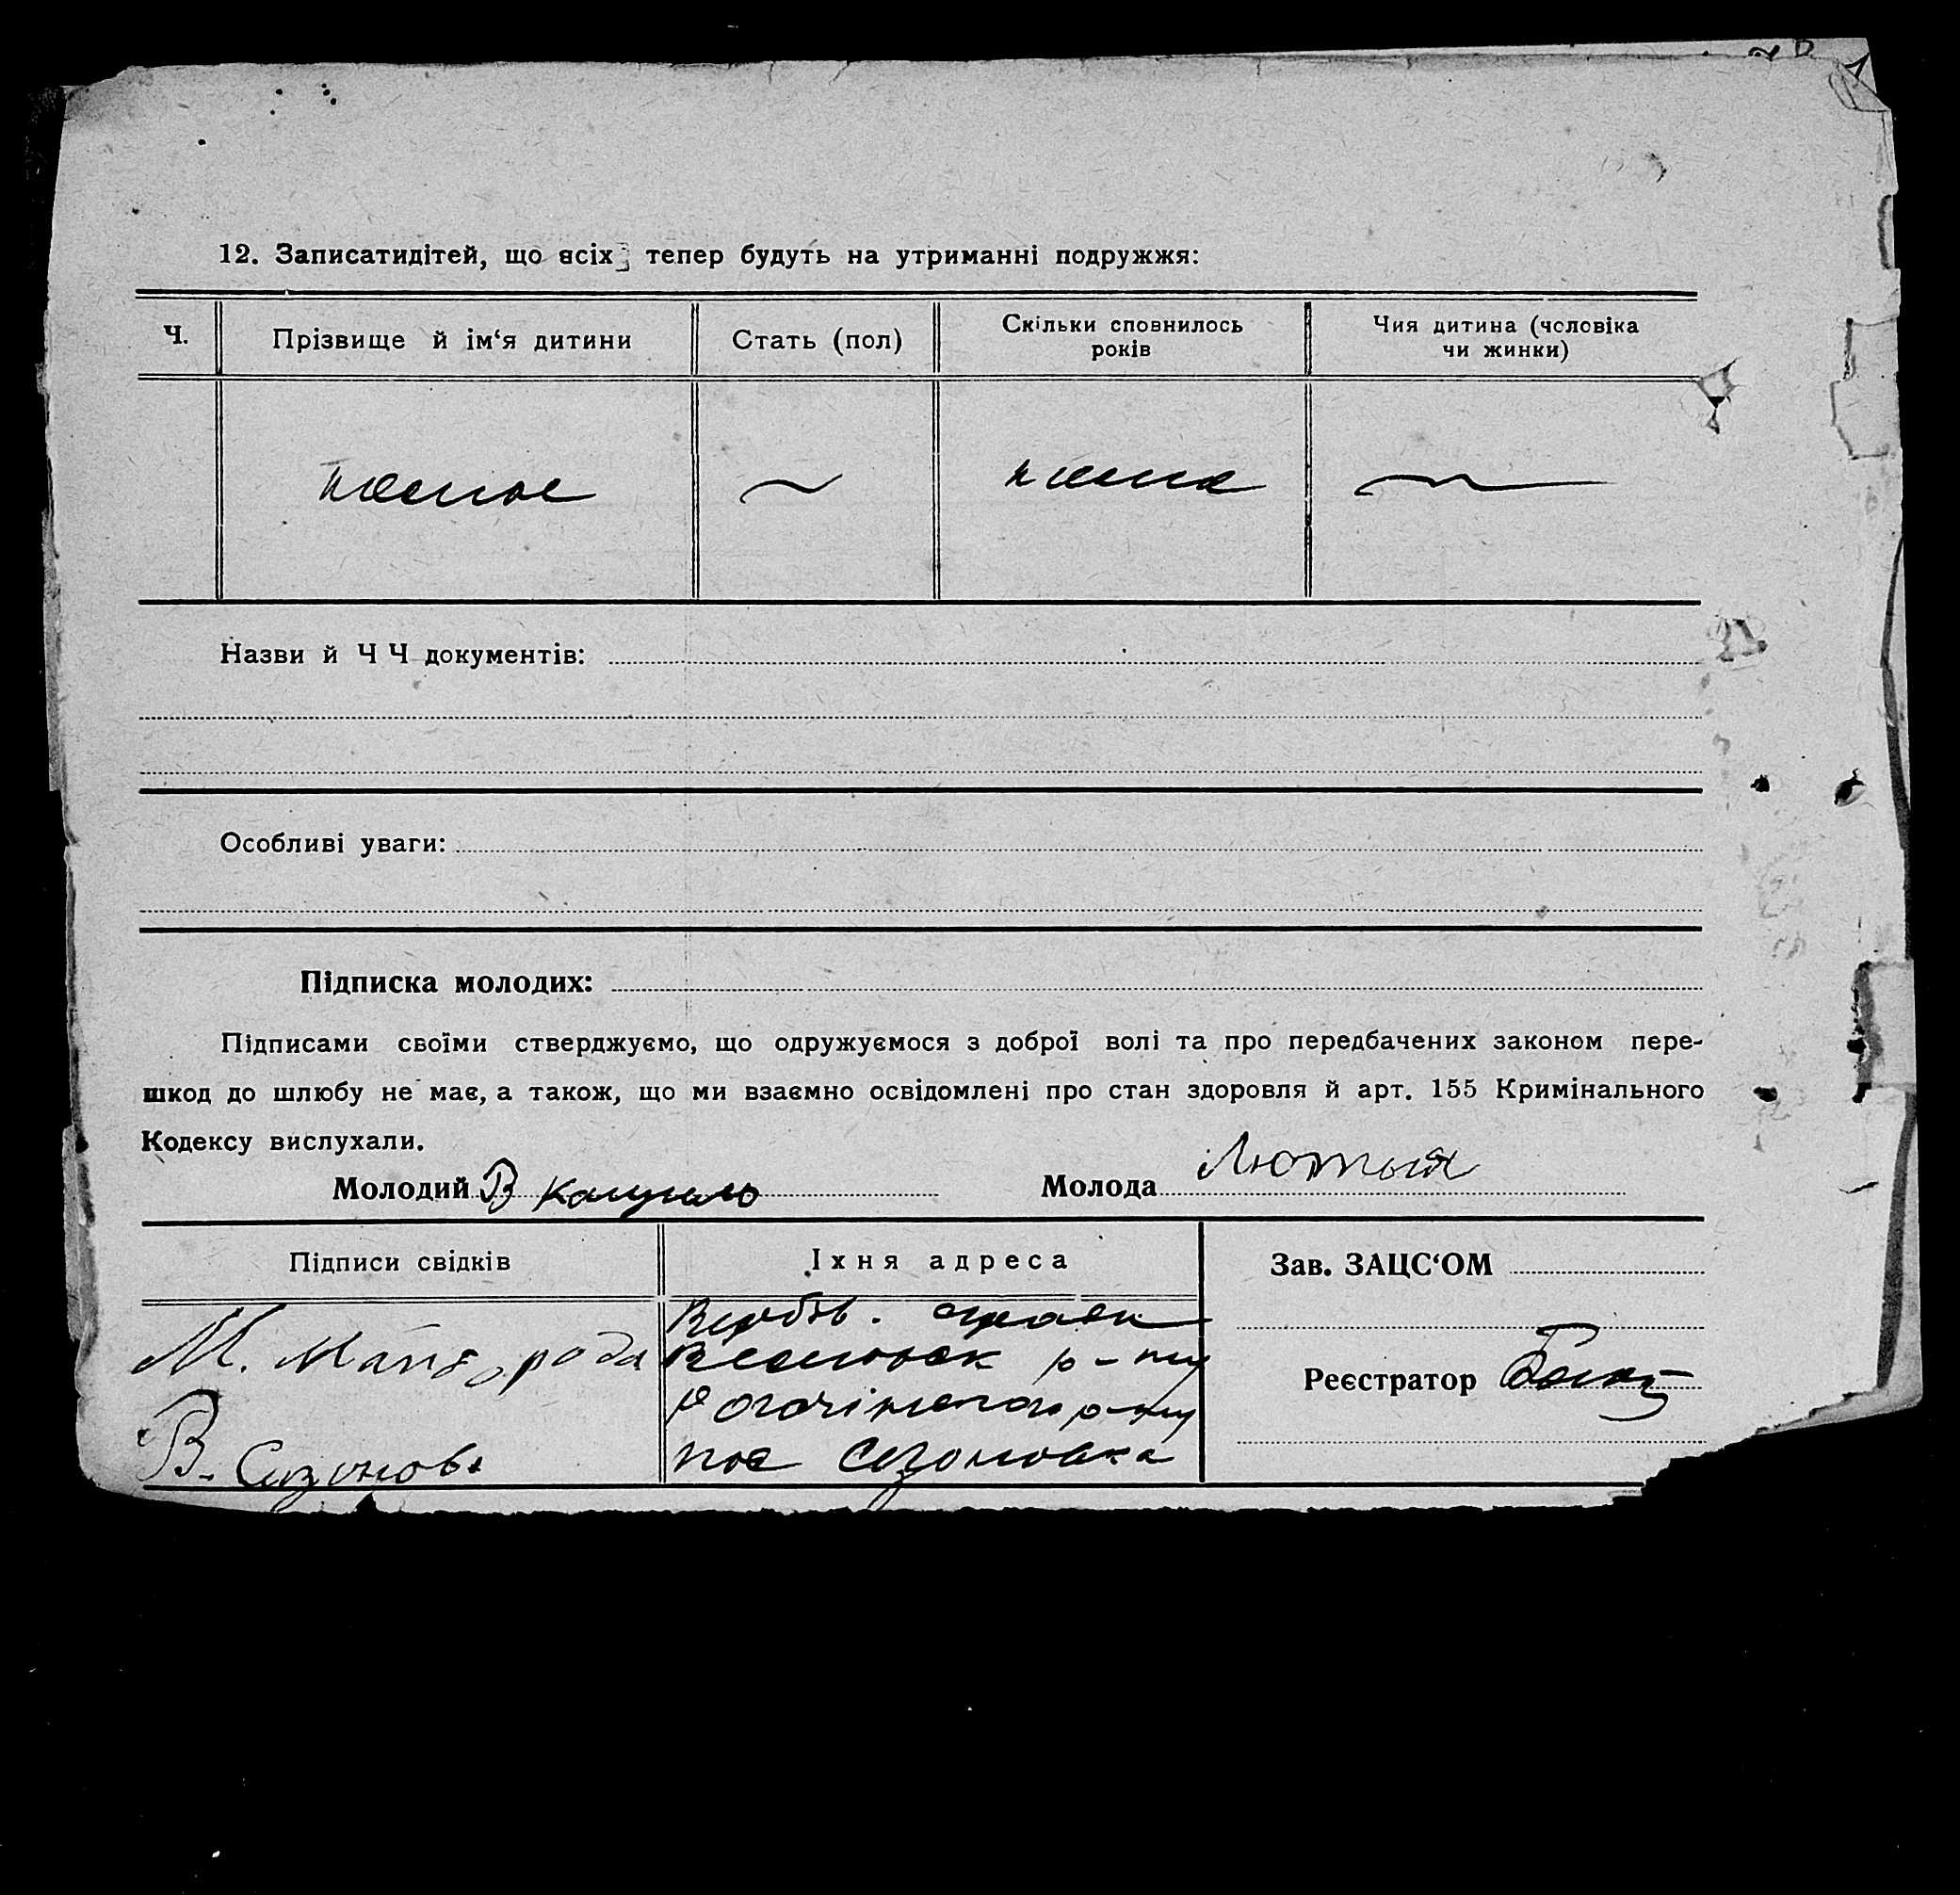 12. Записатидітей, що всіх тепер будуть на утриманні подружжя:
Ч.
Прізвище й ім‘я дитини
Стать (пол)
Скільки сповнилось
років
Чия дитина (чсловіка
чи жинки)
немає
нема
Назви й Ч Ч документів:
Особливі уваги:
Підписка молодих:
Підписами своїми стверджуємо, що одружуємося з доброї волі та про передбачених законом пере-
шкод до шлюбу не має, а також, що ми взаємно освідомлені про стан здоровля й арт. 155 Кримінального
Кодексу вислухали.
Молодий В
Молода Лютая
Підписи свідків
Їхня адреса
Зав. ЗАЦС‘ОМ
М.
р-ну
Реєстратор
Рогачінського р-ну
В. Сизонов
пос Сезоновка